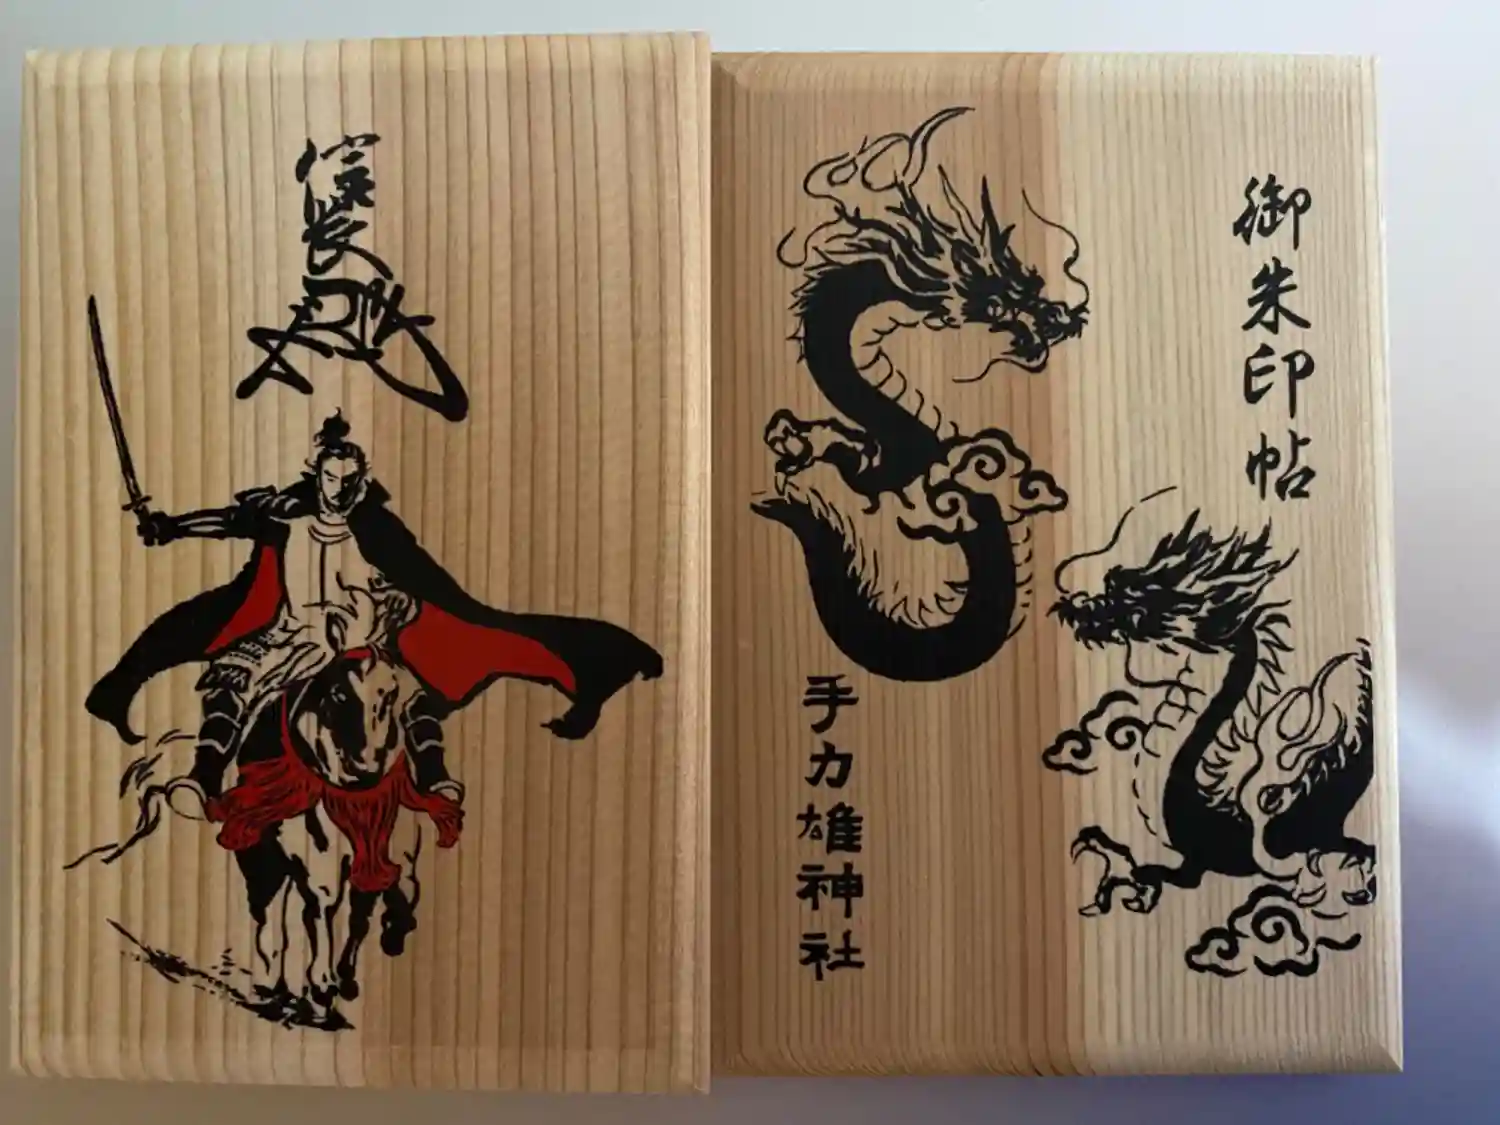 信長
御朱印帖
手力雄神社